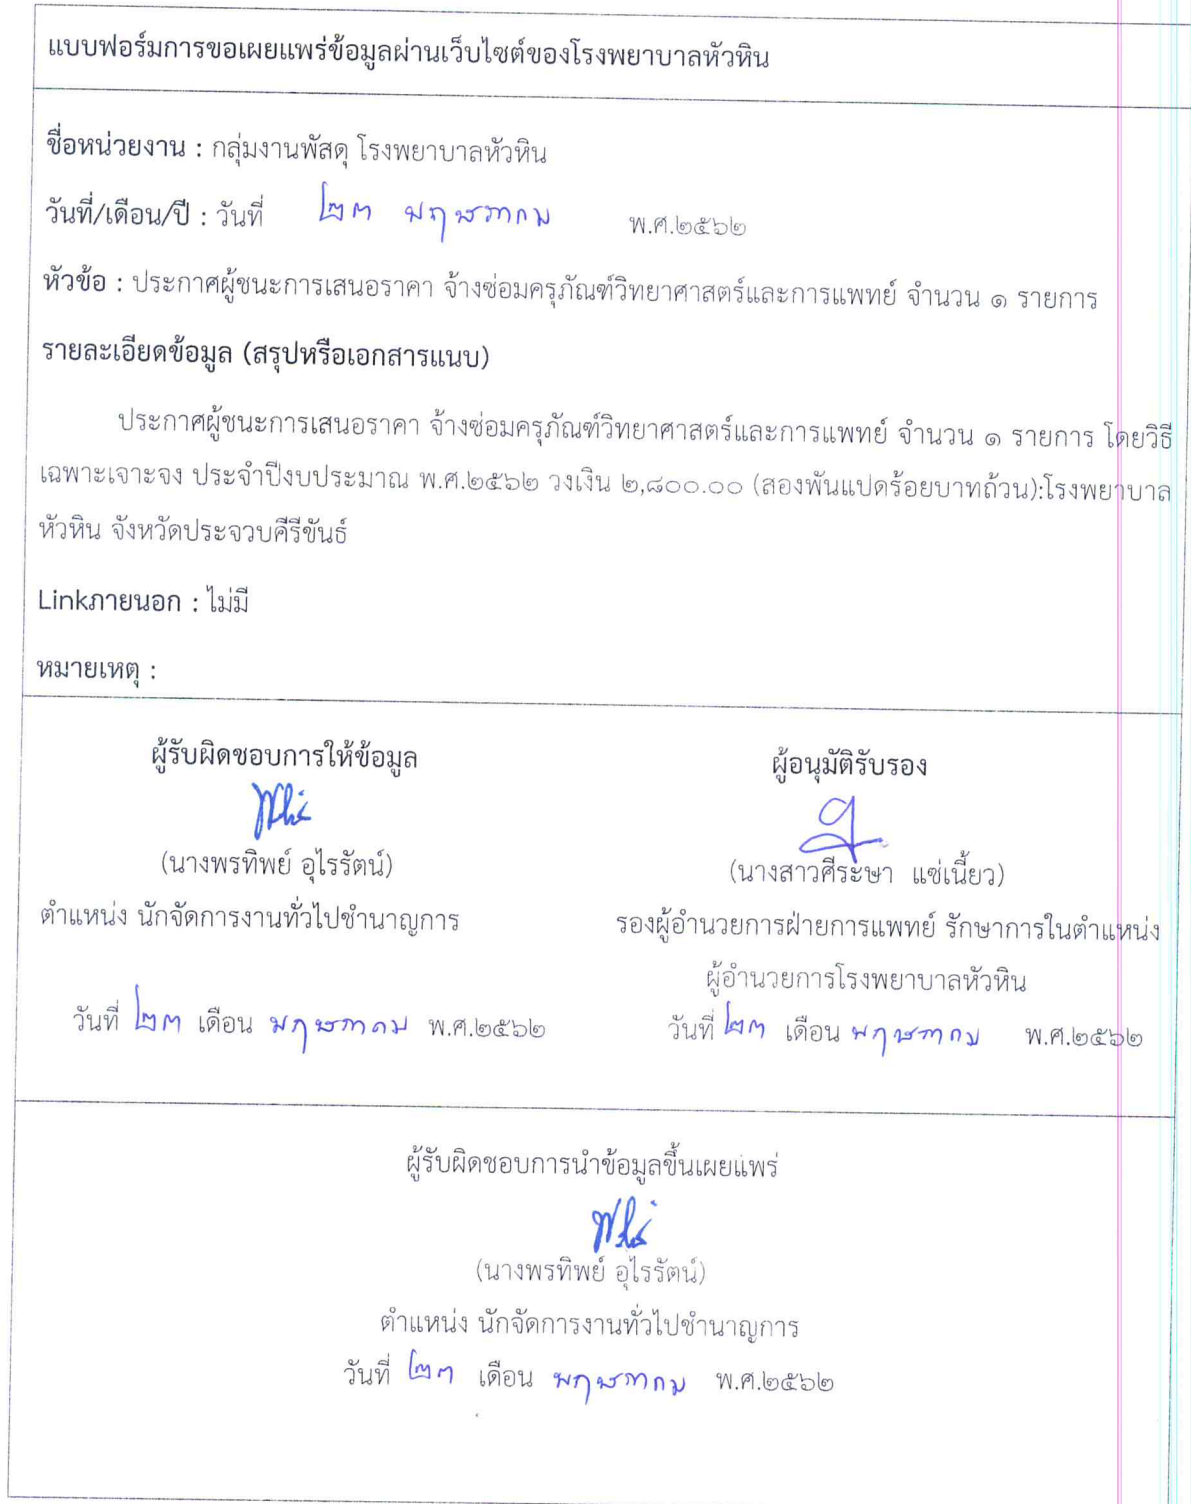 แบบฟอร์มการขอเผยแพร่ข้อมูลผ่านเว็บไซต์ของโรงพยาบาลหัวหิน
ชื่อหน่วยงาน : กลุ่มงานพัสดุ โรงพยาบาลหัวหิน
วันที่/เดือน/ปี : วันที่ ๒๓ พฤษภาคม พ.ศ.๒๕๖๒
หัวข้อ : ประกาศผู้ชนะการเสนอราคา จ้างซ่อมครุภัณฑ์วิทยาศาสตร์และการแพทย์ จำนวน ๑ รายการ
รายละเอียดข้อมูล (สรุปหรือเอกสารแนบ)
ประกาศผู้ชนะการเสนอราคา จ้างซ่อมครุภัณฑ์วิทยาศาสตร์และการแพทย์ จำนวน ๑ รายการ โดยวิธี
เฉพาะเจาะจง ประจำปีงบประมาณ พ.ศ.๒๕๖๒ วงเงิน ๒,๘๐๐.๐๐ (สองพันแปดร้อยบาทถ้วน):โรงพยาบาล
หัวหิน จังหวัดประจวบคีรีขันธ์
Linkภายนอก : ไม่มี
หมายเหตุ :
ผู้รับผิดชอบการให้ข้อมูล
(นางพรทิพย์ อุไรรัตน์)
ตำแหน่ง นักจัดการงานทั่วไปชำนาญการ
วันที่ ๒๓ เดือน พฤษภาคม พ.ศ.๒๕๖๒
ผู้อนุมัติรับรอง
(นางสาวศีระษา แซ่เนี้ยว)
รองผู้อำนวยการฝ่ายการแพทย์ รักษาการในตำแหน่ง
ผู้อำนวยการโรงพยาบาลหัวหิน
วันที่ ๒๓ เดือน พฤษภาคม พ.ศ.๒๕๖๒
ผู้รับผิดชอบการนำข้อมูลขึ้นเผยแพร่
(นางพรทิพย์ อุไรรัตน์)
ตำแหน่ง นักจัดการงานทั่วไปชำนาญการ
วันที่ ๒๓ เดือน พฤษภาคม พ.ศ.๒๕๖๒